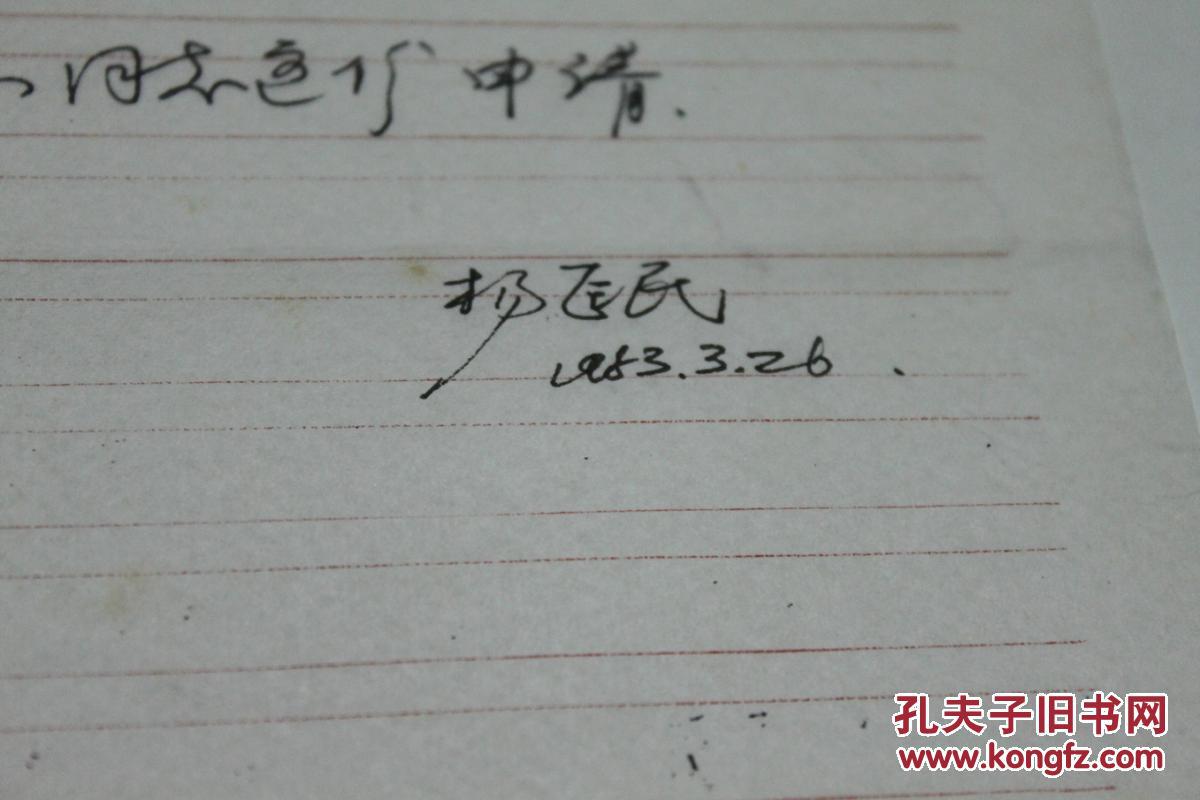 同志这份申请.
杨匡民
1983.3.26.
孔夫子旧书网
www.kongfz.com